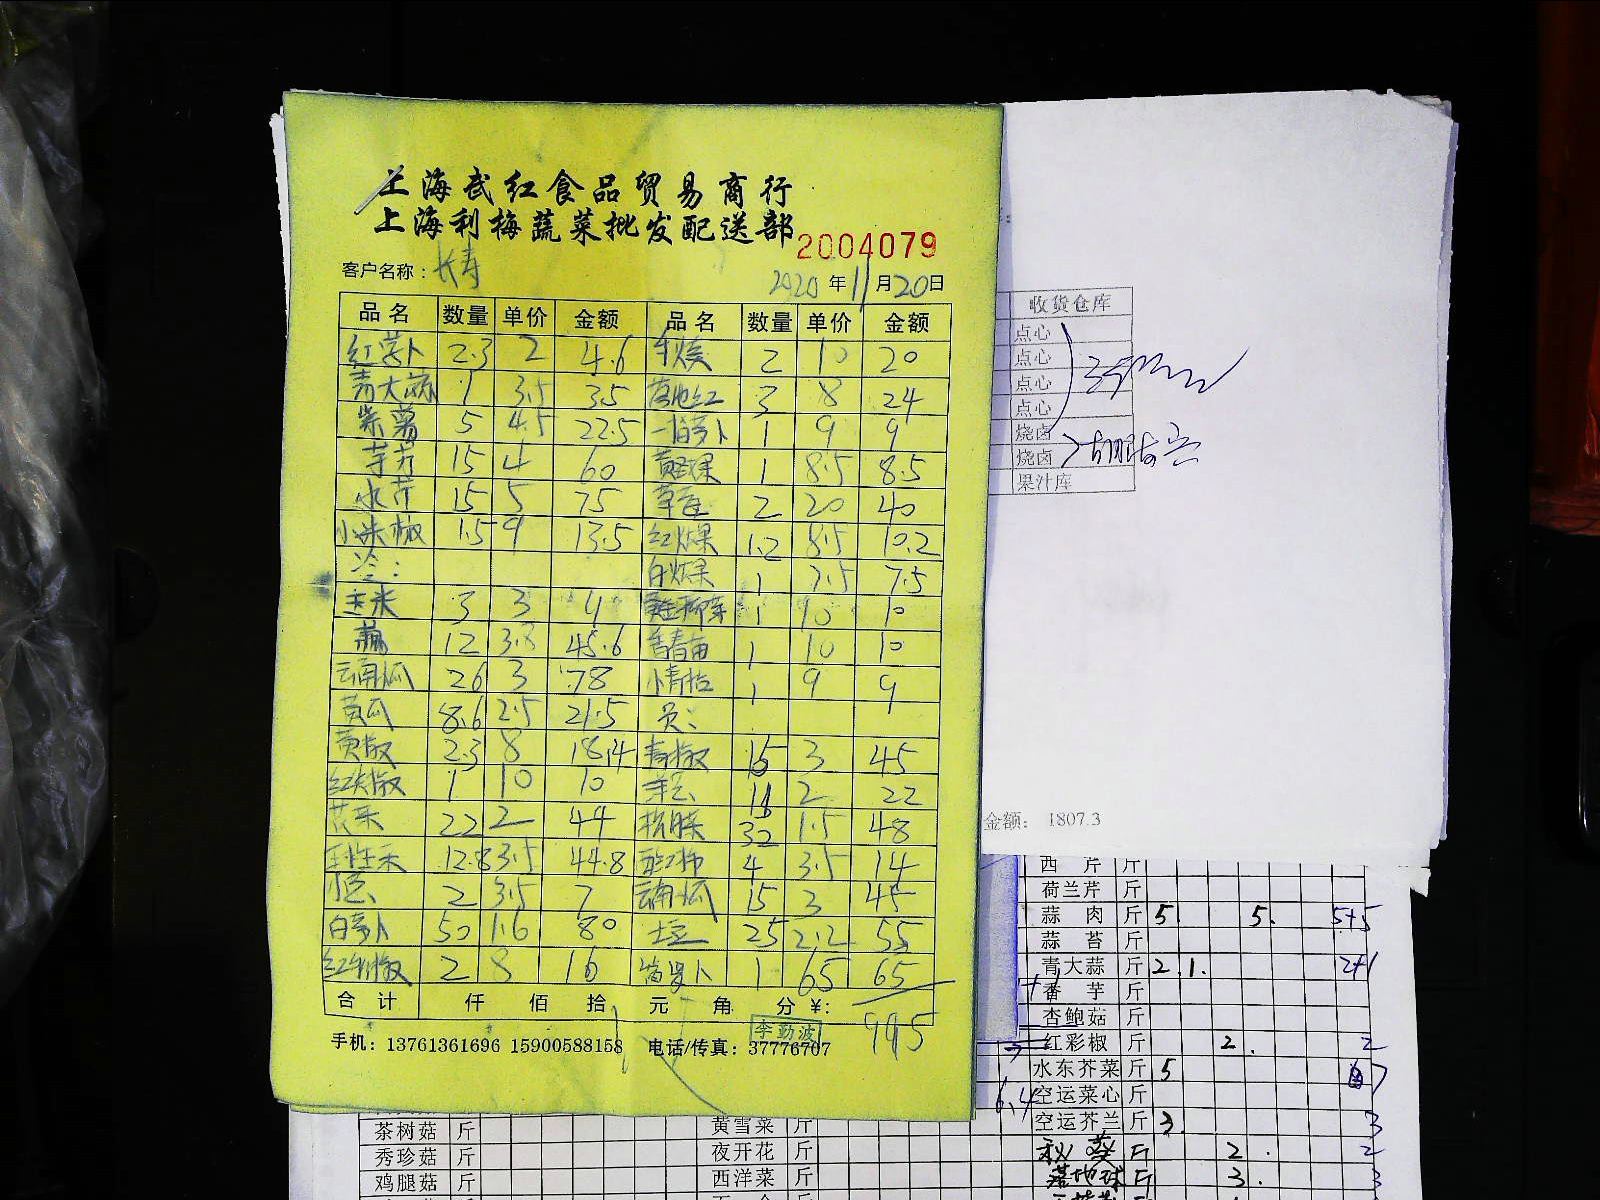 上海武红食品贸易商行
上海利梅蔬菜批发配送部
2004079
客户名称：长寿 2020年11月20日
品名 数量 单价 金额 品名 数量 单价 金额
红萝卜 2.3 2 4.6 牛火关 2 10 20
青大蒜 1 3.5 3.5 落地红 3 8 24
紫薯 5 4.5 22.5 萝卜 1 9 9
芋艿 15 4 60 1 8.5 8.5
水芹 15 5 75 草莓 2 20 40
小米椒 1.5 9 13.5 1.2 8.5 10.2
冷： 1 7.5 7.5
玉米 3 3 9 1 10 10
藕 12 3.8 45.6 1 10 10
云南瓜 26 3 78 1 9 9
黄瓜 8.6 2.5 21.5 员：
黄椒 2.3 8 18.4 青椒 15 3 45
红尖椒 1 10 10 洋葱 11 2 22
花菜 22 2 44 32 1.5 48
12.8 3.5 44.8 西红柿 4 3.5 14
2 3.5 7 云南瓜 15 3 45
白萝卜 50 1.6 80 土豆 25 2.2 55
2 8 16 萝卜 1 65 65
合计 仟 佰 拾 元 角 分 ¥: 995
李勤波
手机：13761361696 15900588158 电话/传真：37776707
收货仓库
点心
点心
点心
点心
烧卤
烧卤
果汁库
金额： 1807.3
西芹 斤
荷兰芹 斤
蒜肉 斤 5 5. 5+5
蒜苔 斤
青大蒜 斤 2.1. 2+1
香芋 斤
杏鲍菇 斤
红彩椒 斤 2. 2
水东芥菜 斤 5 7
6.4 空运菜心 斤
空运芥兰 斤 3. 3
秋葵 斤 2. 2
落地球 斤 3. 3
茶树菇 斤 黄雪菜 斤
秀珍菇 斤 夜开花 斤
鸡腿菇 斤 西洋菜 斤